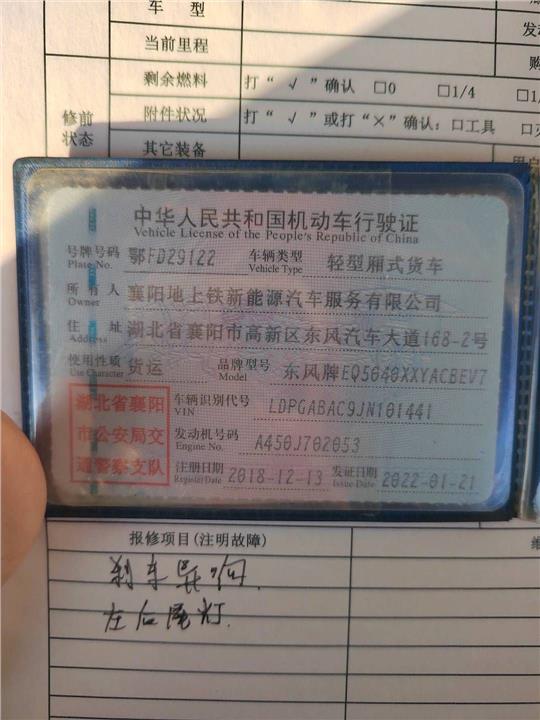 车 型
当前里程
剩余燃料 打“√”确认 □0 □1/4
修前状态
附件状况 打“√”或打“×”确认:□工具
其它装备
中华人民共和国机动车行驶证
Vehicle License of the People's Republic of China
号牌号码 鄂FD29122 车辆类型 轻型厢式货车
Plate No. Vehicle Type
所有人 襄阳地上铁新能源汽车服务有限公司
Owner
住址 湖北省襄阳市高新区东风汽车大道168-2号
Address
使用性质 货运 品牌型号 东风牌EQ5040XXYACBEV7
Use Character Model
湖北省襄阳
市公安局交
通警察支队
车辆识别代号 LDPGABAC9JN101441
VIN
发动机号码 A450J702053
Engine No.
注册日期 2018-12-13 发证日期 2022-01-21
Register Date Issue Date
报修项目(注明故障)
刹车异响
左后尾灯